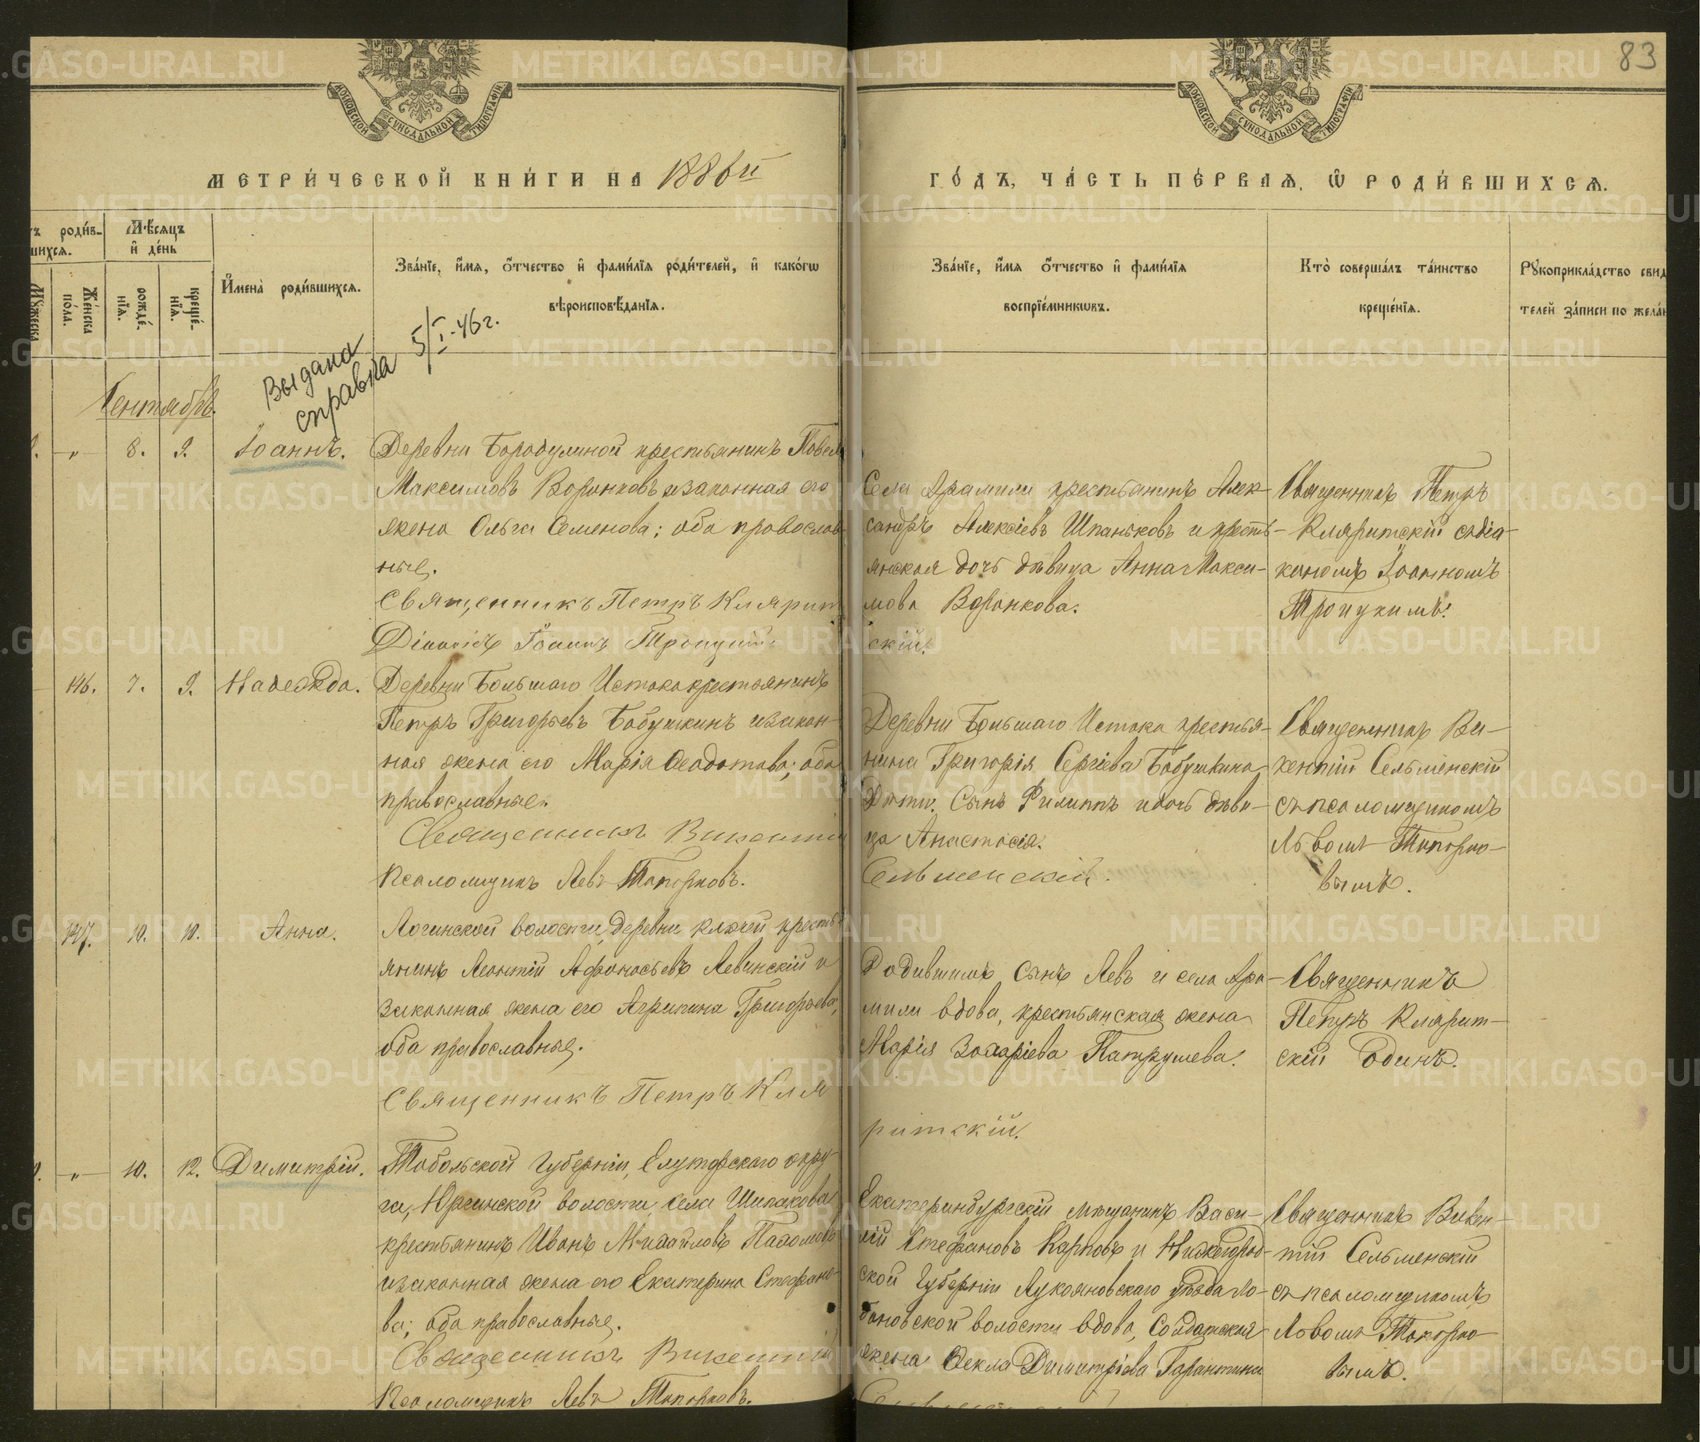 83
МОСКОВСКОЙ СУНОДАЛЬНОЙ ТИПОГРАФІИ
МОСКОВСКОЙ СУНОДАЛЬНОЙ ТИПОГРАФІИ
МЕТРИ́ЧЕСКОЙ КНИ́ГИ НА 1886й
ГО́ДЪ, ЧА́СТЬ ПЕ́РВАЯ, Ѡ РОДИ́ВШИХСЯ.
роди́в-
шихся.
Мѣ́сяцъ
и҆ де́нь
Же́нска
по́ла.
рожде́-
нїя.
креще́-
нїя.
И҆мена̀ роди́вшихся.
Зва́нїе, и҆́мя, ѻ҆́тчество и҆ фами́лїя роди́телей, и҆ како́гѡ
вѣроисповѣ́данїя.
Зва́нїе, и҆́мя ѻ҆́тчество и҆ фами́лїя
воспрїе́мниковъ.
Кто̀ соверша́лъ та́инство
креще́нїя.
Рꙋкоприкла́дство свид
телей за́писи по жела́н
Выдана
справка
5/I-46г.
Сентябрь.
„ 8. 9. Іоаннъ.
Деревни Бородулиной крестьянинъ Павелъ
Максимовъ Воронковъ и законная его
жена Ольга Семенова; оба православ
ные.
Священникъ Петръ Клярит
Діаконъ Іоаннъ
Села Арамили крестьянинъ Алек-
сандръ Алексіевъ Шпаньковъ и кресть-
янская дочь дѣвица Анна Макси-
мова Воронкова.
скій.
Священникъ Петръ
Кляритскій съ діа-
кономъ Іоанномъ
146. 7. 9. Надежда.
Деревни Большаго Истока крестьянинъ
Петръ Григорьевъ Бабушкинъ и закон-
ная жена его Марія Ѳеодотова; оба
православные.
Священникъ Викентій
Псаломщикъ Левъ Топорковъ.
Деревни Большаго Истока крестья-
нина Григорія Сергіева Бабушкина
Дѣти: Сынъ Филиппъ и дочь дѣви-
ца Анастасія.
Сельменскій.
Священникъ Ви-
кентій Сельменскій
съ псаломщикомъ
Львомъ Топорко-
вымъ.
147. 10. 10. Анна.
Логинской волости, деревни Ключей кресть
янинъ Леонтій Афонасьевъ Левинскій и
законная жена его Агрипина Григорьева,
оба православные.
Священникъ Петръ Кля
Родившихъ Сынъ Левъ и села Ара-
мили вдова, крестьянская жена
Марія Захаріева Патрушева.
ритскій.
Священникъ
Петръ Клярит-
скій Одинъ.
„ 10. 12. Димитрій.
Тобольской Губерніи, Елуторскаго окру-
га, Юргинской волости, села Шипакова
крестьянинъ Иванъ Михайловъ Пахомовъ
и законная жена его Екатерина Стефано-
ва; оба православные.
Священникъ Викентій
Псаломщикъ Левъ Топорковъ.
Екатеринбургскій мѣщанинъ Васи-
лій Стефановъ Карповъ и Нижегород-
ской Губерніи Лукояновскаго уѣзда Ло-
бановской волости вдова, Солдатская
жена Ѳекла Димитріева Гарантина
Священникъ Викен-
тій Сельменскій
съ псаломщикомъ
Львомъ Топорко-
вымъ.
METRIKI.GASO-URAL.RU